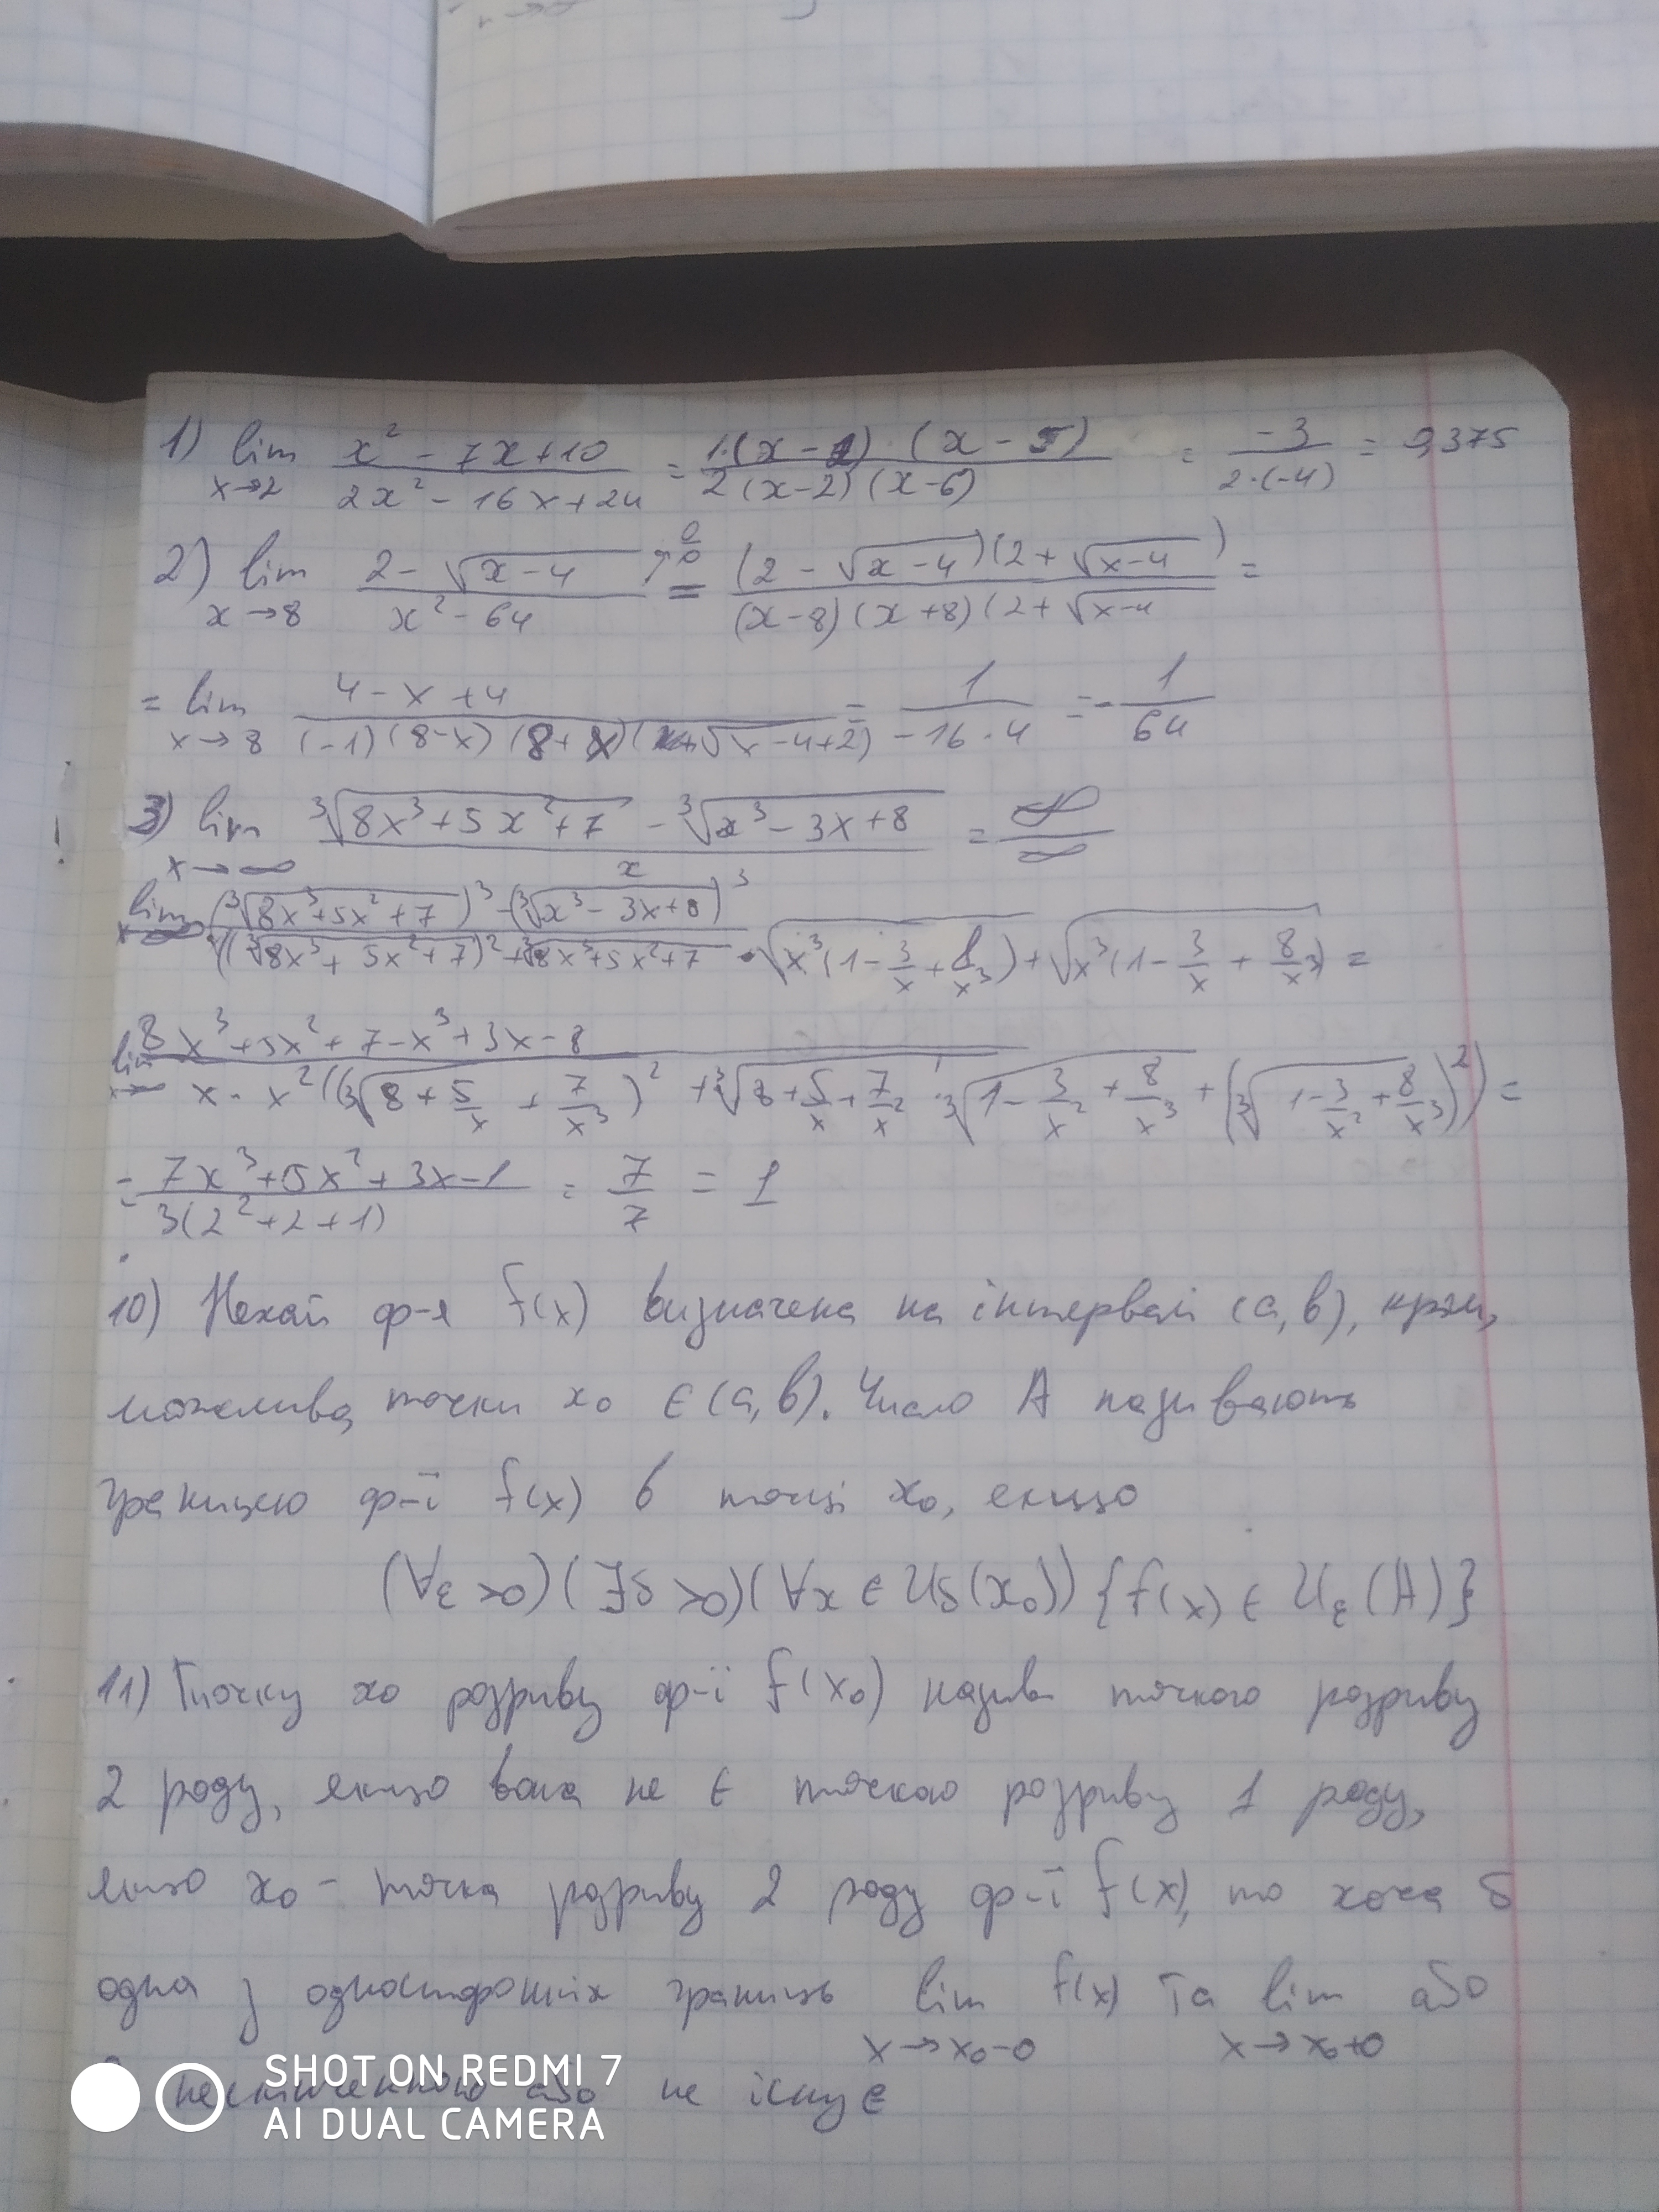 1) lim x→2 (x² - 7x + 10)/(2x² - 16x + 24) = 1·(x - 2)·(x - 5)/2(x-2)(x-6) = -3/2·(-4) = 0,375
2) lim x→8 (2 - √(x-4))/(x² - 64) = 0/0 = (2 - √(x-4))(2 + √(x-4))/(x-8)(x+8)(2 + √(x-4) =
= lim x→8 (4 - x + 4)/(-1)(8-x)(8+x)(√(x-4)+2) = 1/-16·4 = -1/64
3) lim x→∞ (∛(8x³+5x²+7) - ∛(x³-3x+8))/x = ∞/∞
lim x→∞ (∛(8x³+5x²+7))³ - (∛(x³-3x+8))³/x((∛(8x³+5x²+7))² + ∛(8x³+5x²+7) · √(x³(1-3/x+8/x³)) + √(x³(1-3/x+8/x³)) =
lim x→∞ 8x³+5x²+7-x³+3x-8/x·x²((∛(8+5/x+7/x³))² + ∛(8+5/x+7/x²) · ∛(1-3/x²+8/x³) + (∛(1-3/x²+8/x³))²) =
= 7x³+5x²+3x-1/3(2²+2+1) = 7/7 = 1
10) Нехай ф-я f(x) визначена на інтервалі (a,b), крім,
можливо, точки x₀ ∈ (a,b). Число A називають
границею ф-ї f(x) в точці x₀, якщо
(∀ε>0)(∃δ>0)(∀x ∈ Uδ(x₀)){f(x) ∈ Uε(A)}
11) Точку x₀ розриву ф-ї f(x₀) назив точкою розриву
2 роду, якщо вона не є точкою розриву 1 роду,
якщо x₀ - точка розриву 2 роду ф-ї f(x), то хоча б
одна з односторонніх границь lim x→x₀-0 f(x) та lim x→x₀+0 або
нескінченною або не існує
SHOT ON REDMI 7
AI DUAL CAMERA